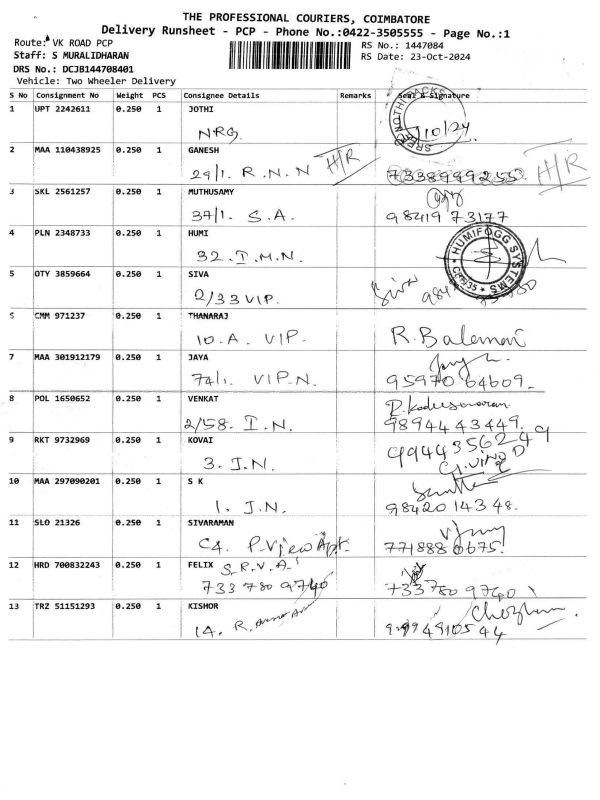 THE PROFESSIONAL COURIERS, COIMBATORE
Delivery Runsheet - PCP - Phone No.:0422-3505555 - Page No.:1
Route: VK ROAD PCP
RS No.: 1447084
Staff: S MURALIDHARAN
RS Date: 23-Oct-2024
DRS No.: DCJB144708401
Vehicle: Two Wheeler Delivery
S No Consignment No Weight PCS Consignee Details Remarks Seal & Signature
1 UPT 2242611 0.250 1 JOTHI
NRG /10/24
2 MAA 110438925 0.250 1 GANESH
29/1. R.N.N H/R 7338999255 H/R
3 SKL 2561257 0.250 1 MUTHUSAMY
37/1. S.A. 98419 73177
4 PLN 2348733 0.250 1 HUMI
32. T.M.N. HUMIFOGG SYSTEMS
5 OTY 3859664 0.250 1 SIVA
2/33 VIP. Siva
6 CMM 971237 0.250 1 THANARAJ
10.A. VIP. R. Balemani
7 MAA 301912179 0.250 1 JAYA
74/1. VIP.N. 95970 64609.
8 POL 1650652 0.250 1 VENKAT
2/58. I.N. 98944 43449.
9 RKT 9732969 0.250 1 KOVAI
3. J.N. 9944356249
G.VINOD
10 MAA 297090201 0.250 1 S K
1. J.N. 98420 14348.
11 SLO 21326 0.250 1 SIVARAMAN
C4. P.View Apt.
12 HRD 700832243 0.250 1 FELIX S.R.V.A.
733 780 9740 733780 9740
13 TRZ 51151293 0.250 1 KISHOR
14. R.